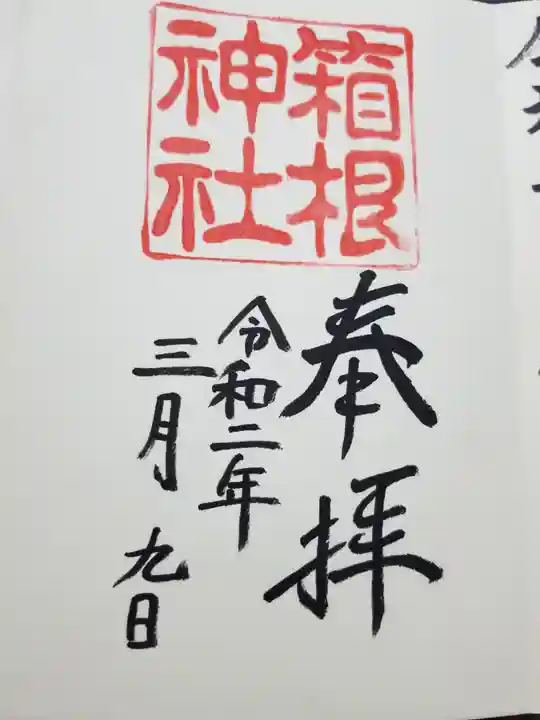 箱根
神社
奉拝
令和二年
三月九日